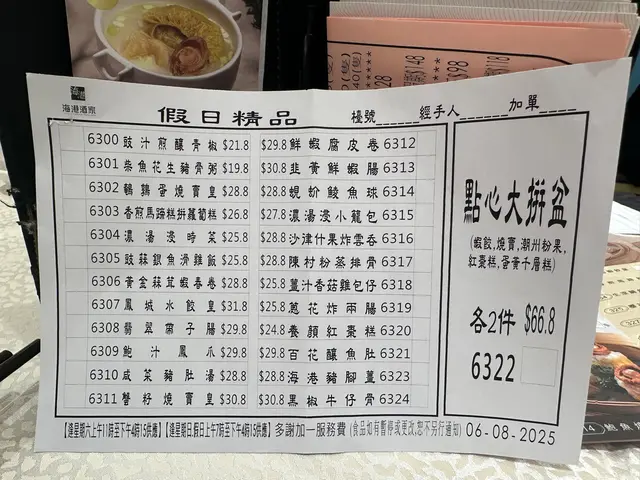 海港酒家
假日精品 檯號______ 經手人______ 加單____
6300 豉汁煎釀青椒 $21.8
6301 柴魚花生豬骨粥 $19.8
6302 鵪鶉蛋燒賣皇 $28.8
6303 香煎馬蹄糕拼蘿蔔糕 $26.8
6304 濃湯浸時菜 $25.8
6305 豉蒜銀魚滑雞飯 $25.8
6306 黃金蒜茸蝦春卷 $28.8
6307 鳳城水餃皇 $31.8
6308 翡翠帶子腸 $29.8
6309 鮑汁鳳爪 $29.8
6310 咸菜豬肚湯 $28.8
6311 蟹籽燒賣皇 $30.8
$29.8 鮮蝦腐皮卷 6312
$30.8 韭黃鮮蝦腸 6313
$28.8 蜆蚧鯪魚球 6314
$27.8 濃湯浸小籠包 6315
$28.8 沙津什果炸雲吞 6316
$28.8 陳村粉蒸排骨 6317
$25.8 薑汁香菇雞包仔 6318
$25.8 蔥花炸兩腸 6319
$24.8 養顏紅棗糕 6320
$29.8 百花釀魚肚 6321
$28.8 海港豬腳薑 6323
$30.8 黑椒牛仔骨 6324
點心大拼盆
(蝦餃,燒賣,潮州粉果,
紅棗糕,蛋黃千層糕)
各2件 $66.8
6322
【逢星期六上午11時至下午4時15供應】【逢星期日,假日上午7時至下午4時15供應】多謝加一服務費(食品如有暫停或更改,恕不另行通知) 06-08-2025
$148
$98
$118